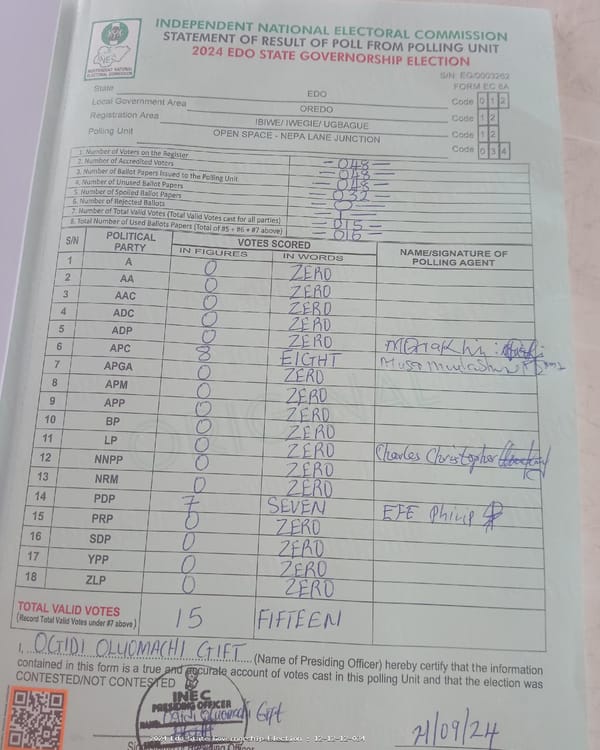 INDEPENDENT NATIONAL ELECTORAL COMMISSION
STATEMENT OF RESULT OF POLL FROM POLLING UNIT
2024 EDO STATE GOVERNORSHIP ELECTION
INEC
INDEPENDENT NATIONAL ELECTORAL COMMISSION
S/N: EG/0003262
FORM EC 8A
State EDO Code 0 1 2
Local Government Area OREDO Code 1 2
Registration Area IBIWE/ IWEGIE/ UGBAGUE Code 1 2
Polling Unit OPEN SPACE - NEPA LANE JUNCTION Code 0 3 4
1. Number of Voters on the Register 048
2. Number of Accredited Voters
3. Number of Ballot Papers Issued to the Polling Unit 048
4. Number of Unused Ballot Papers 032
5. Number of Spoiled Ballot Papers
6. Number of Rejected Ballots 1
7. Number of Total Valid Votes (Total Valid Votes cast for all parties) 015
8. Total Number of Used Ballots Papers (Total of #5 + #6 + #7 above) 016
S/N POLITICAL PARTY VOTES SCORED NAME/SIGNATURE OF POLLING AGENT
IN FIGURES IN WORDS
1 A 0 ZERO
2 AA 0 ZERO
3 AAC 0 ZERO
4 ADC 0 ZERO
5 ADP 0 ZERO
6 APC 8 EIGHT
7 APGA 0 ZERO
8 APM 0 ZERO
9 APP 0 ZERO
10 BP 0 ZERO
11 LP 0 ZERO Charles Christopher
12 NNPP 0 ZERO
13 NRM 0 ZERO
14 PDP 7 SEVEN EFE Philip
15 PRP 0 ZERO
16 SDP 0 ZERO
17 YPP 0 ZERO
18 ZLP 0 ZERO
TOTAL VALID VOTES 15 FIFTEEN
(Record Total Valid Votes under #7 above)
ORIGINAL
I, OGIDI OLUOMACHI GIFT (Name of Presiding Officer) hereby certify that the information
contained in this form is a true and accurate account of votes cast in this polling Unit and that the election was
CONTESTED/NOT CONTESTED
INEC
PRESIDING OFFICER
Ogidi Oluomachi Gift
2024 Edo State Governorship Election : 12-12-12-034
21/09/24